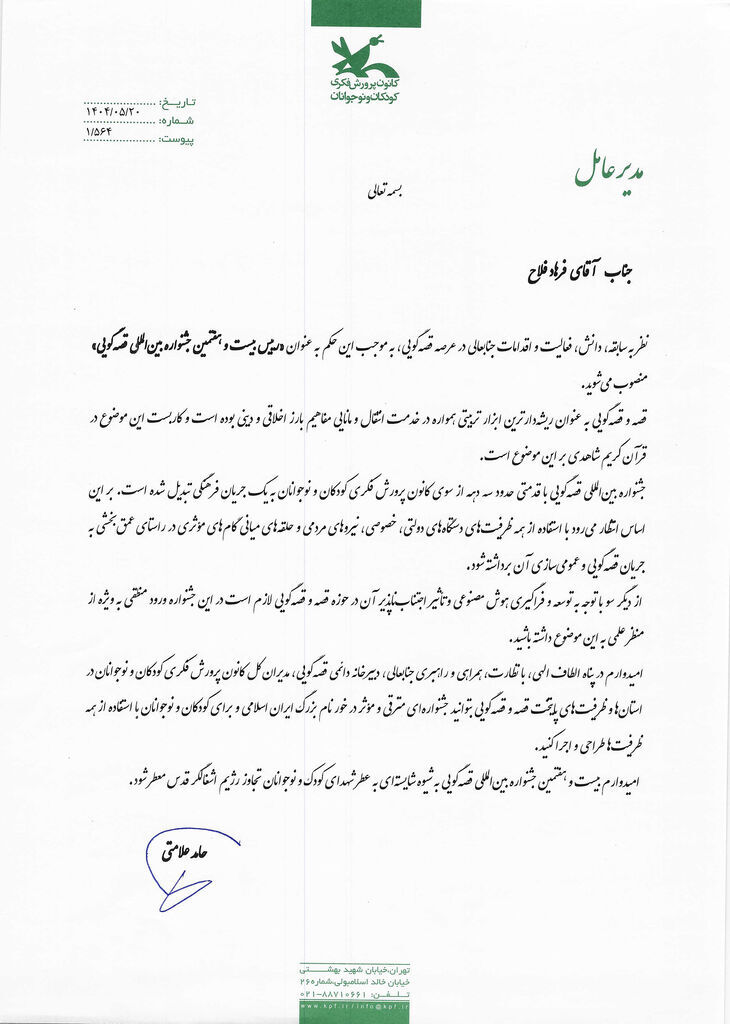 کانون پرورش فکری
کودکان و نوجوانان
تاریخ: ۱۴۰۴/۰۵/۲۰
شماره: ۱/۵۶۴
پیوست:
مدیر عامل
بسمه تعالی
جناب آقای فرهاد فلاح
نظر به سابقه، دانش، فعالیت و اقدامات جنابعالی در عرصه قصه‌گویی، به موجب این حکم به عنوان «رییس بیست و هفتمین جشنواره بین‌المللی قصه‌گویی»
منصوب می‌شوید.
قصه و قصه‌گویی به عنوان ریشه‌دارترین ابزار تربیتی همواره در خدمت انتقال و مانایی مفاهیم بارز اخلاقی و دینی بوده است و کاربست این موضوع در
قرآن کریم شاهدی بر این موضوع است.
جشنواره بین‌المللی قصه‌گویی با قدمتی حدود سه دهه از سوی کانون پرورش فکری کودکان و نوجوانان به یک جریان فرهنگی تبدیل شده است. بر این
اساس انتظار می‌رود با استفاده از همه ظرفیت‌های دستگاه‌های دولتی، خصوصی، نیروهای مردمی و حلقه‌های میانی گام‌های مؤثری در راستای عمق‌بخشی به
جریان قصه‌گویی و عمومی‌سازی آن برداشته شود.
از دیگر سو با توجه به توسعه و فراگیری هوش مصنوعی و تأثیر اجتناب‌ناپذیر آن در حوزه قصه و قصه‌گویی لازم است در این جشنواره ورود متقنی به ویژه از
منظر علمی به این موضوع داشته باشید.
امیدوارم در پناه الطاف الهی، با نظارت، همراهی و راهبری جنابعالی، دبیرخانه دائمی قصه‌گویی، مدیران کل کانون پرورش فکری کودکان و نوجوانان در
استان‌ها و ظرفیت‌های پایتخت قصه و قصه‌گویی بتوانید جشنواره‌ای مترقی و مؤثر در خور نام بزرگ ایران اسلامی و برای کودکان و نوجوانان با استفاده از همه
ظرفیت‌ها طراحی و اجرا کنید.
امیدوارم بیست و هفتمین جشنواره بین‌المللی قصه‌گویی به شیوه شایسته‌ای به عطر شهدای کودک و نوجوانان تجاوز رژیم اشغالگر قدس معطر شود.
حامد علامتی
تهران،خیابان شهید بهشتی
خیابان خالد اسلامبولی،شماره۲۶
تلفن: ۸۸۷۱۰۶۶۱-۰۲۱
www.kpf.ir/info@kpf.ir